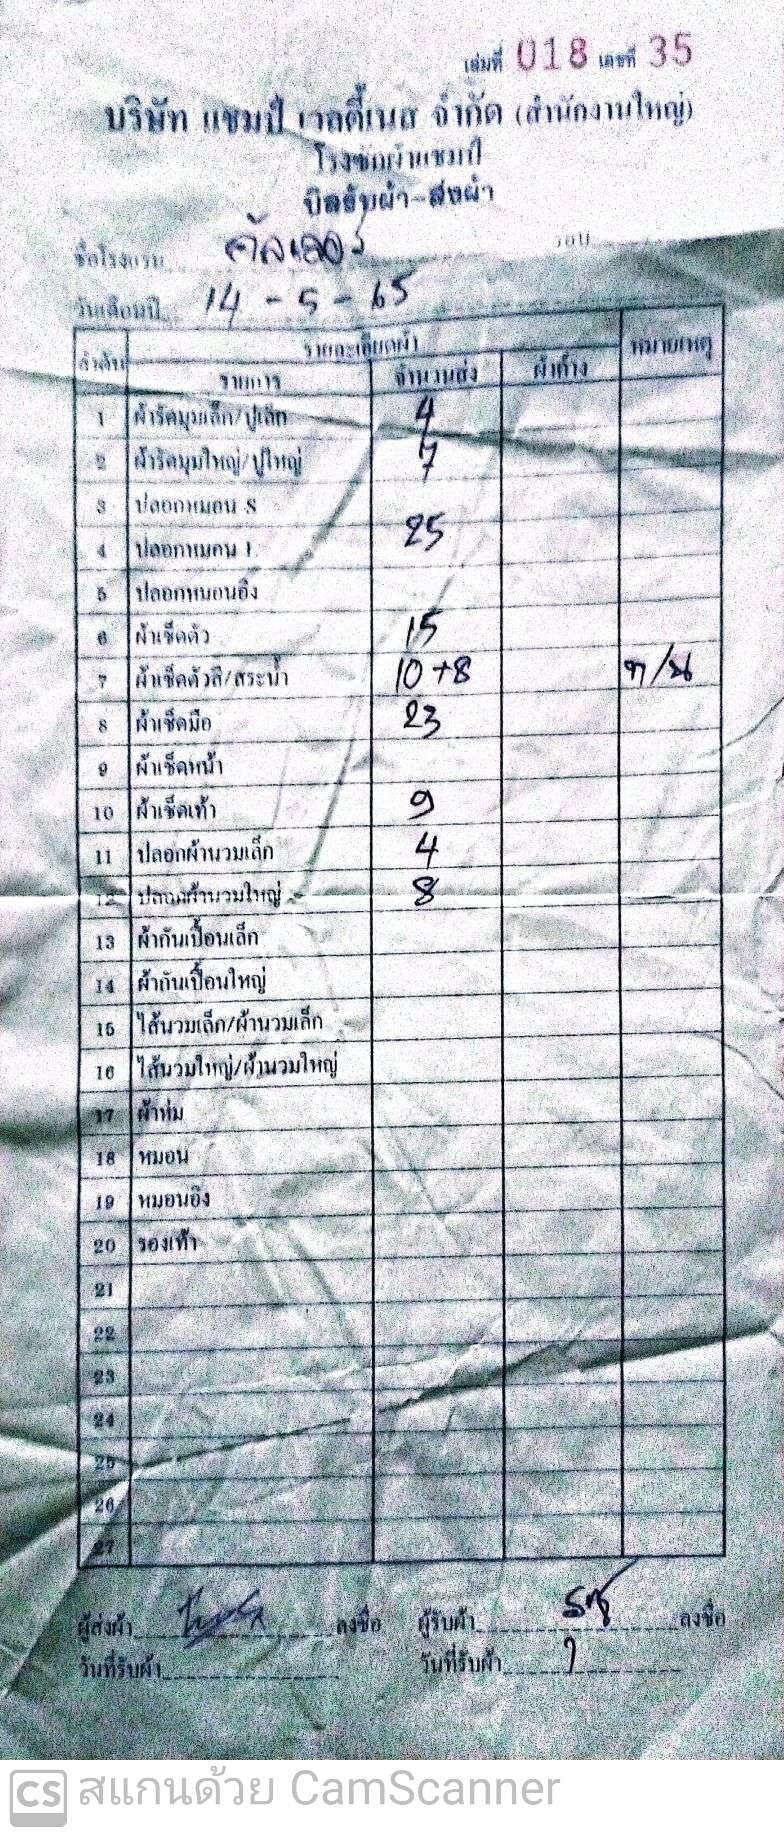 เล่มที่ 018 เลขที่ 35
บริษัท แชมป์ เวลตี้เนส จำกัด (สำนักงานใหญ่)
โรงซักผ้าแชมป์
บิลรับผ้า-ส่งผ้า
ชื่อโรงแรม คัลเลอร์ รอบ
วันเดือนปี 14 - 5 - 65
ลำดับ รายละเอียดผ้า หมายเหตุ
รายการ จำนวนส่ง ผ้าค้าง
1 ผ้ารัดมุมเล็ก/ปูเล็ก 4
2 ผ้ารัดมุมใหญ่/ปูใหญ่ 7
3 ปลอกหมอน S
4 ปลอกหมอน L 25
5 ปลอกหมอนอิง
6 ผ้าเช็ดตัว 15
7 ผ้าเช็ดตัวสี/สระน้ำ 10+8 ท/น
8 ผ้าเช็ดมือ 23
9 ผ้าเช็ดหน้า
10 ผ้าเช็ดเท้า 9
11 ปลอกผ้านวมเล็ก 4
12 ปลอกผ้านวมใหญ่ 8
13 ผ้ากันเปื้อนเล็ก
14 ผ้ากันเปื้อนใหญ่
15 ไส้นวมเล็ก/ผ้านวมเล็ก
16 ไส้นวมใหญ่/ผ้านวมใหญ่
17 ผ้าห่ม
18 หมอน
19 หมอนอิง
20 รองเท้า
21
22
23
24
25
26
27
ผู้ส่งผ้า ลงชื่อ ผู้รับผ้า ลงชื่อ
วันที่รับผ้า วันที่รับผ้า
CS สแกนด้วย CamScanner